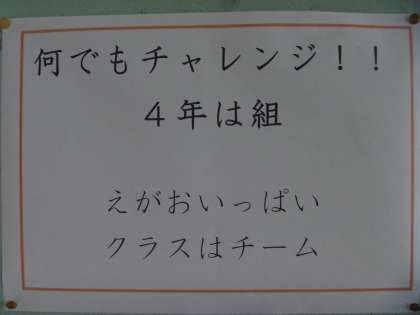 何でもチャレンジ！！
４年は組
えがおいっぱい
クラスはチーム